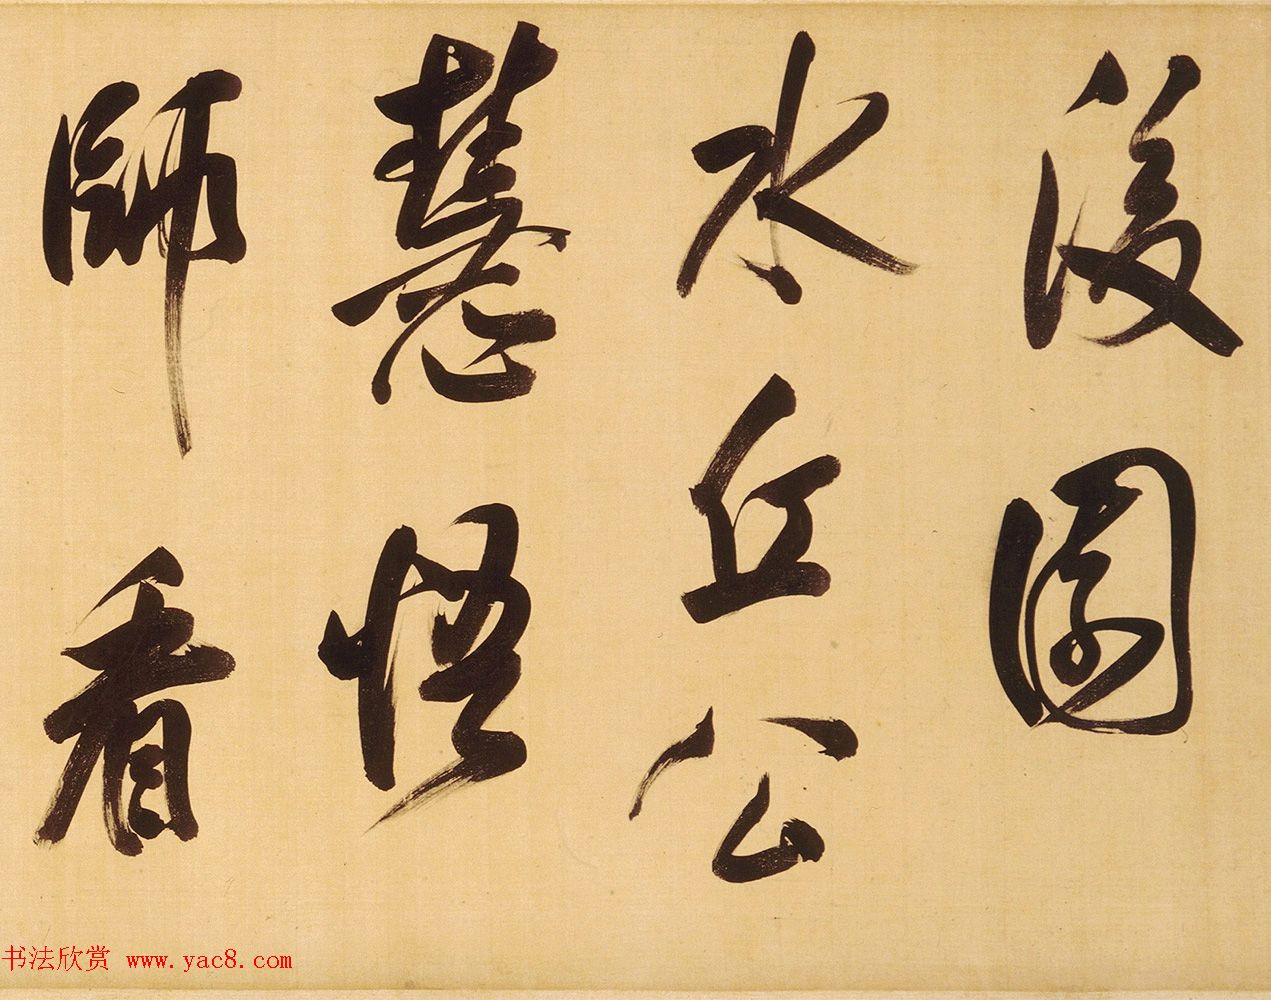 後園
水丘公
慧悟
師看
书法欣赏 www.yac8.com